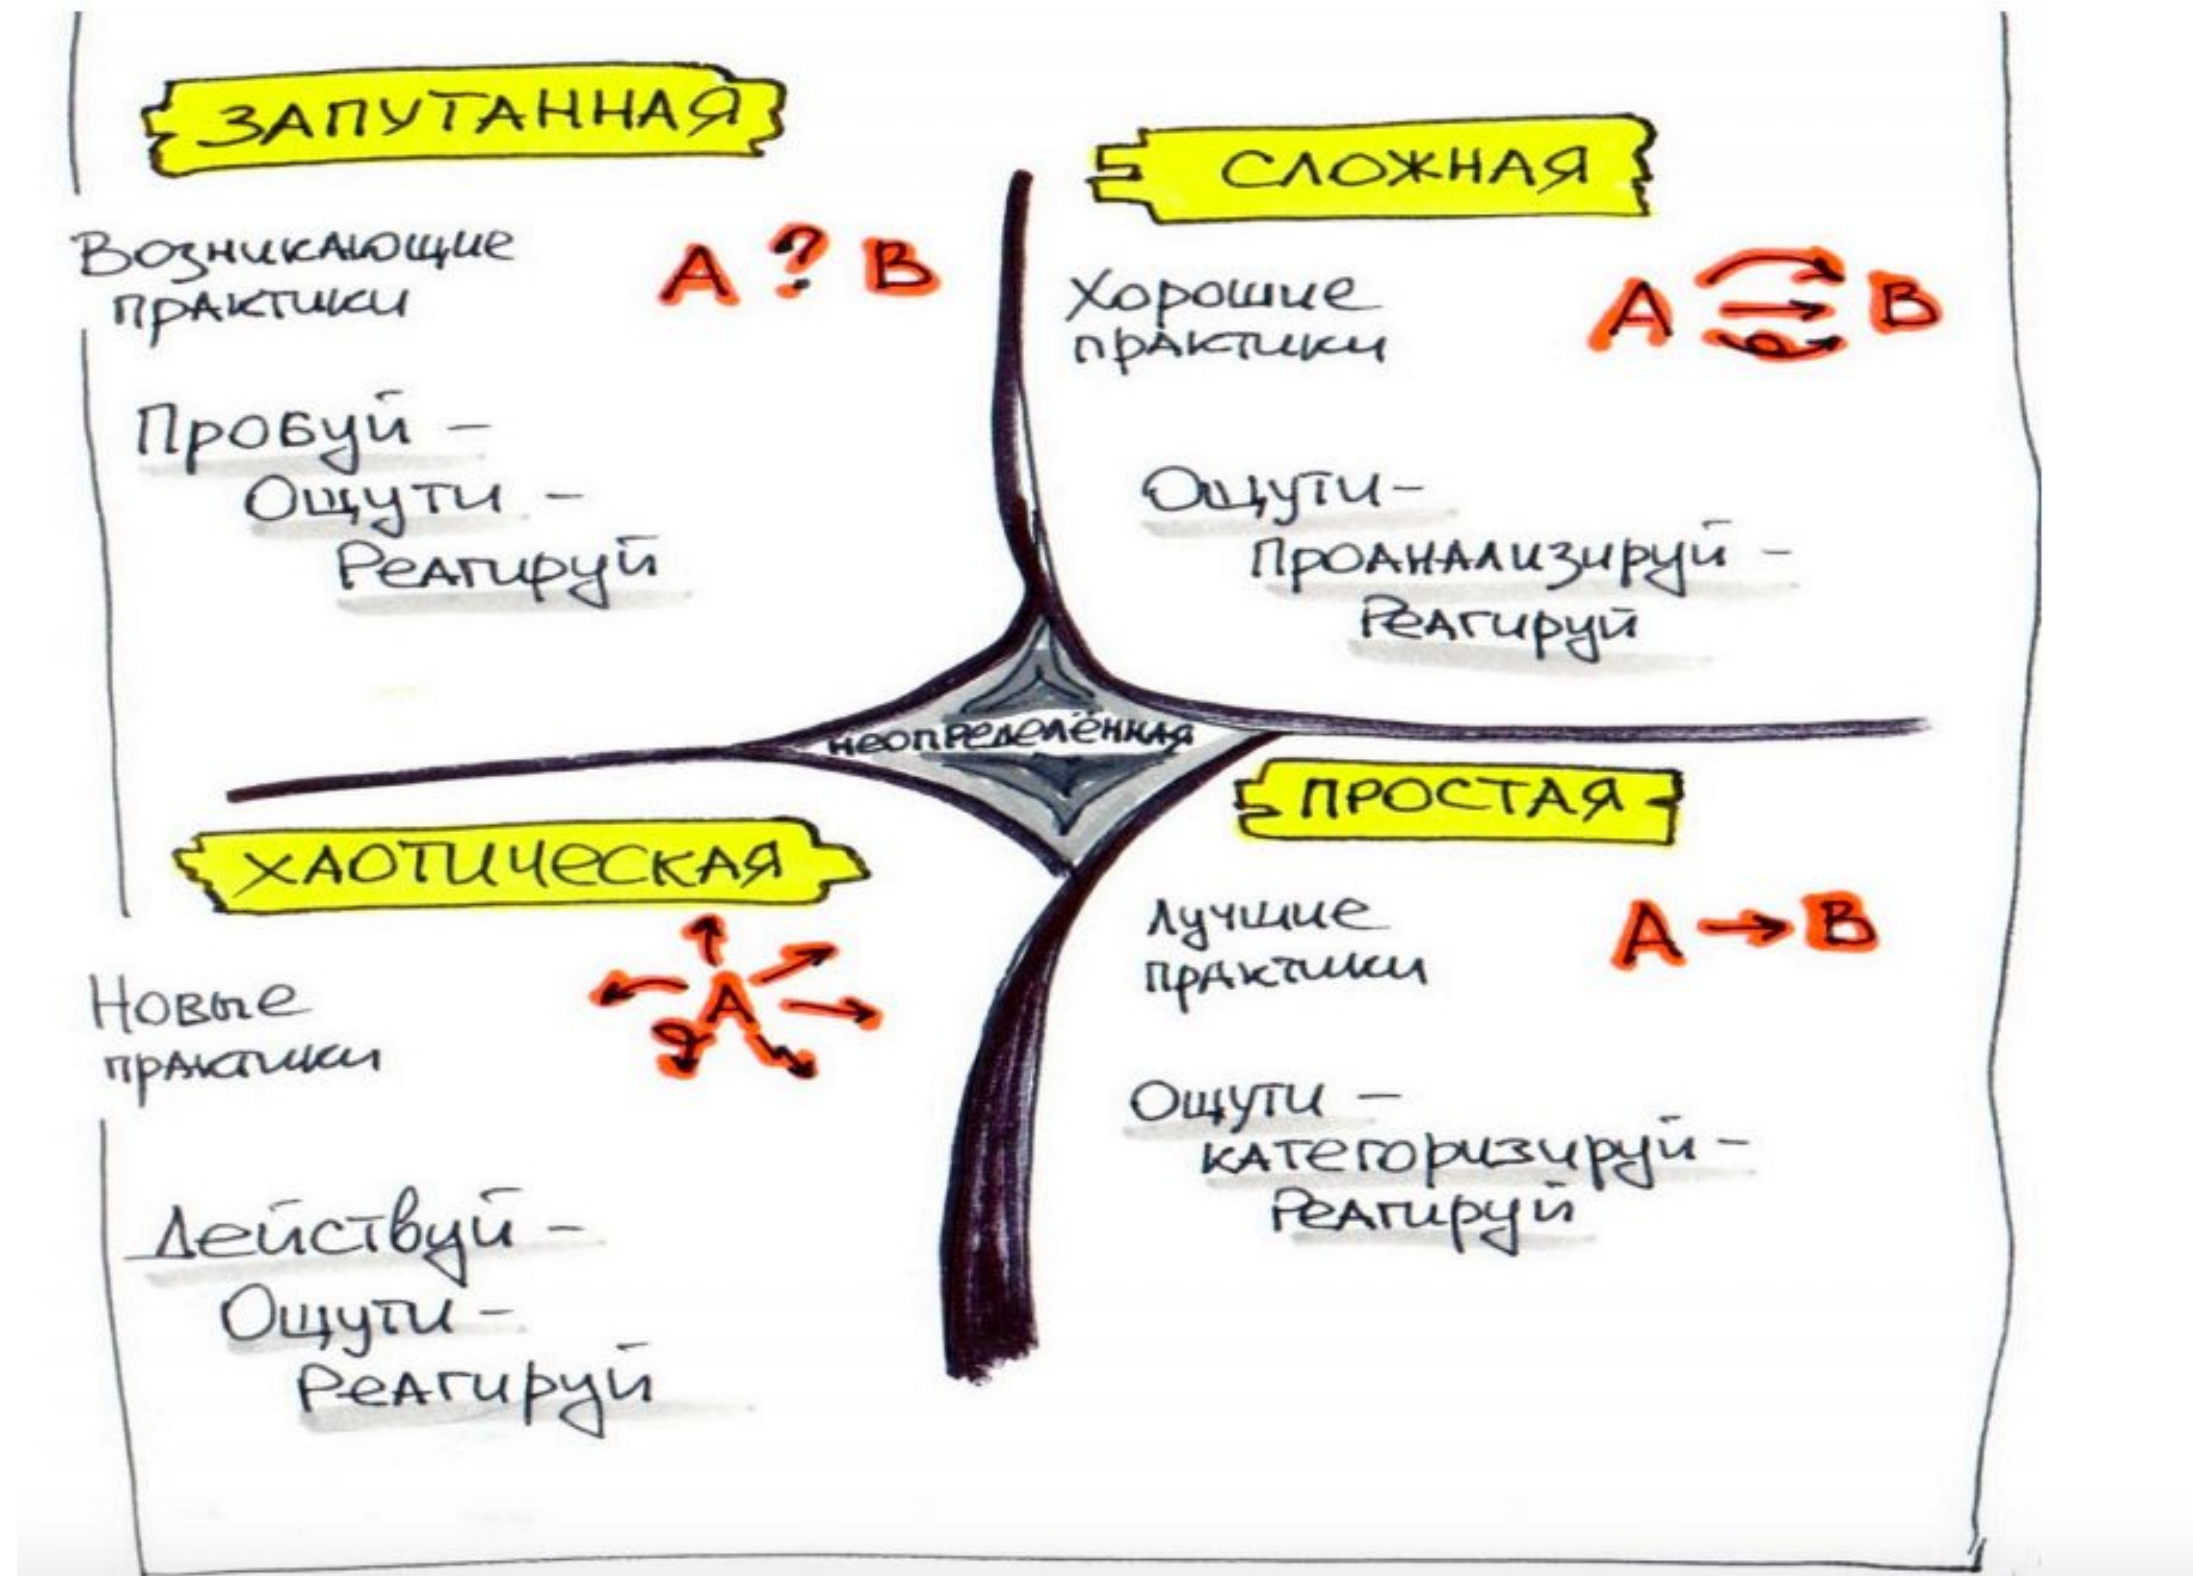 ЗАПУТАННАЯ
Возникающие
практики
А ? В
Пробуй -
Ощути -
Реагируй
СЛОЖНАЯ
Хорошие
практики
А В
Ощути -
Проанализируй -
Реагируй
неопределённая
ХАОТИЧЕСКАЯ
Новые
практики
А
Действуй -
Ощути -
Реагируй
ПРОСТАЯ
Лучшие
практики
А → В
Ощути -
категоризируй -
Реагируй